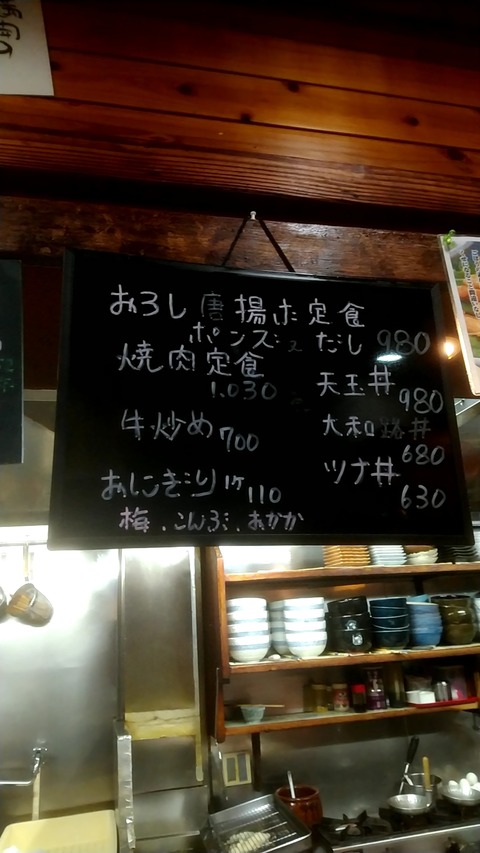 おろし唐揚げ定食
ポンズ だし 980
焼肉定食
1.030
天玉丼
980
牛炒め 700
大和路丼
680
おにぎり 1ヶ 110
ツナ丼
630
梅.こんぶ.おかか